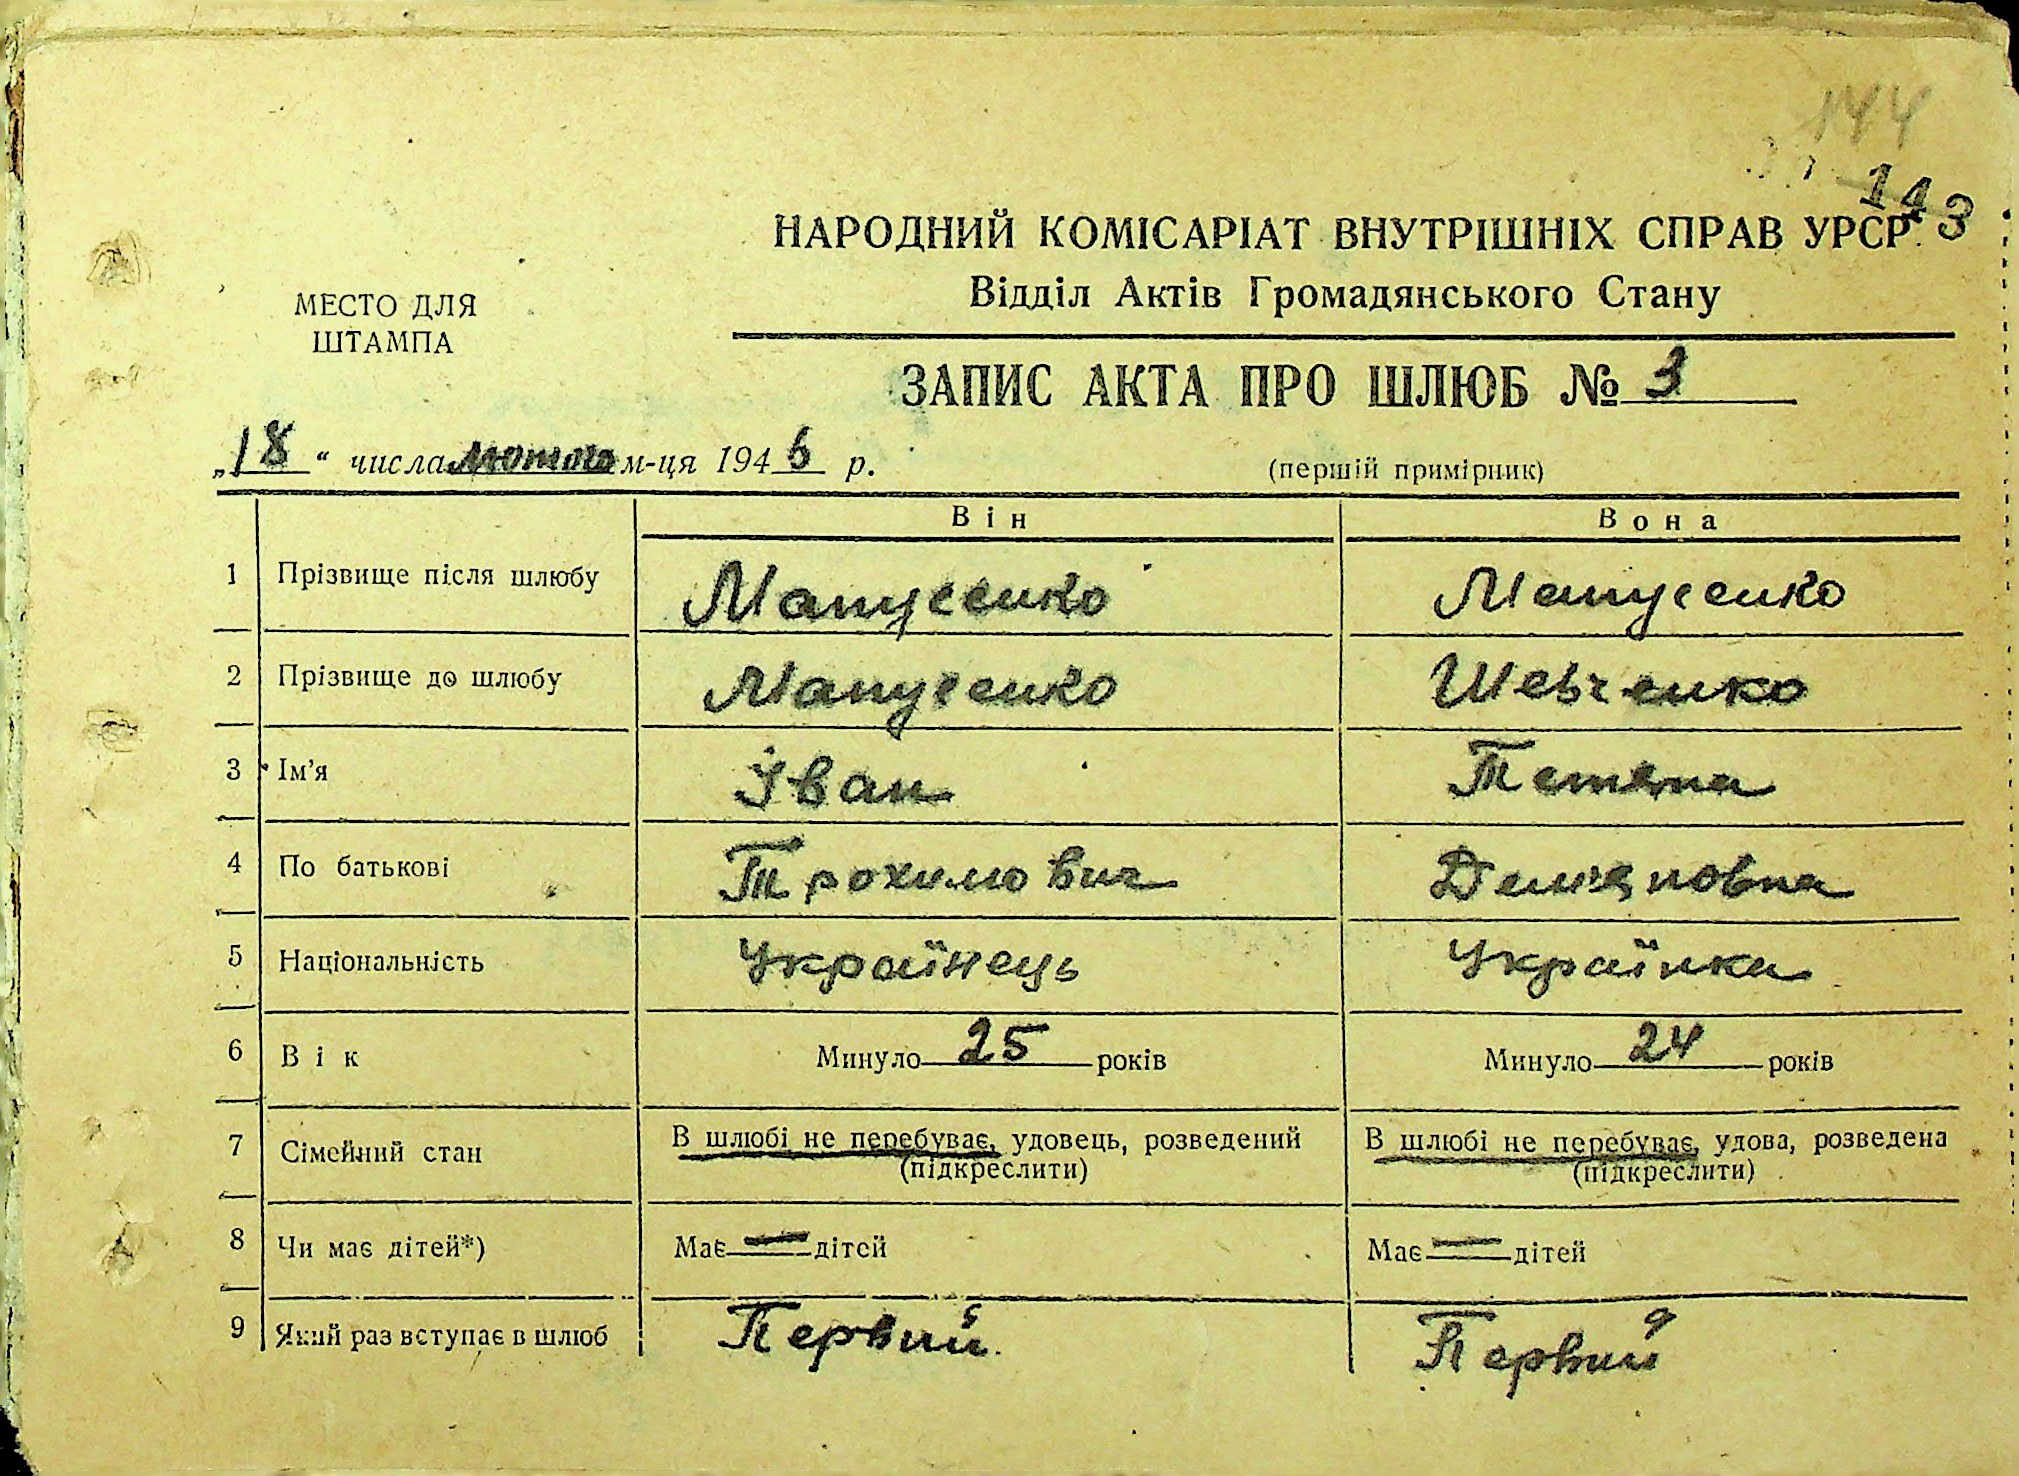 144
143
НАРОДНИЙ КОМІСАРІАТ ВНУТРІШНІХ СПРАВ УРСР
Відділ Актів Громадянського Стану
МЕСТО ДЛЯ
ШТАМПА
ЗАПИС АКТА ПРО ШЛЮБ № 3
„18“ числа лютого м-ця 1946 р.
(першій примірник)
Він Вона
1 Прізвище після шлюбу Мапусенко Мапусенко
2 Прізвище до шлюбу Мапусенко Шевченко
3 Ім’я Іван Тетяна
4 По батькові Трохимович Дем'яновна
5 Національність Українець Українка
6 Вік Минуло 25 років Минуло 24 років
7 Сімейний стан В шлюбі не перебуває, удовець, розведений В шлюбі не перебуває, удова, розведена
(підкреслити) (підкреслити)
8 Чи має дітей*) Має — дітей Має — дітей
9 Який раз вступає в шлюб Первий Первий